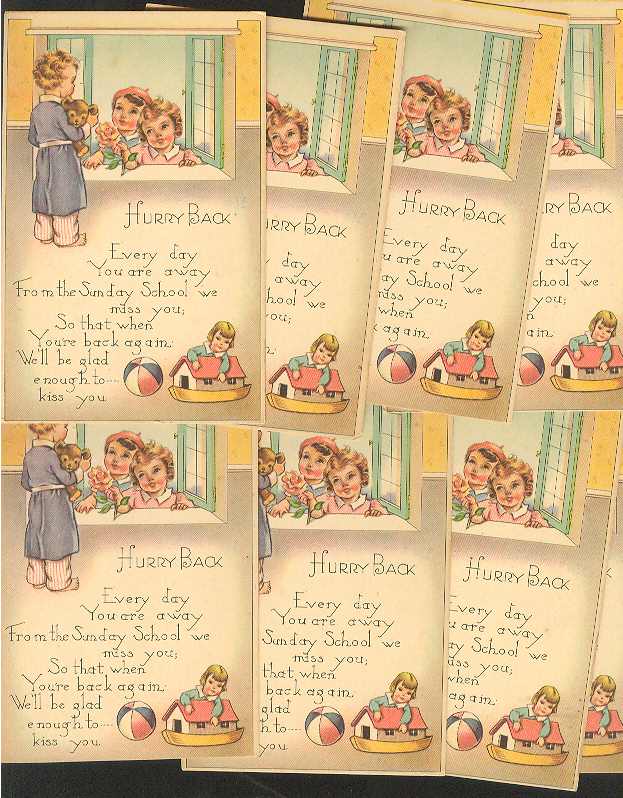 HURRY BACK
Every day
You are away
From the Sunday School we
miss you;
So that when
You're back again.
We'll be glad
enough to....
kiss you.
HURRY BACK
day
away
hool we
miss you;
HURRY BACK
Every day
u are away
ay School we
miss you;
when
k again.
RY BACK
day
away
chool we
miss you;
when
again.
HURRY BACK
Every day
You are away
From the Sunday School we
miss you;
So that when
You're back again.
We'll be glad
enough to....
kiss you.
HURRY BACK
Every day
You are away
Sunday School we
miss you;
that when
back again.
glad
to....
you.
HURRY BACK
Every day
u are away
ay School we
miss you;
when
again.